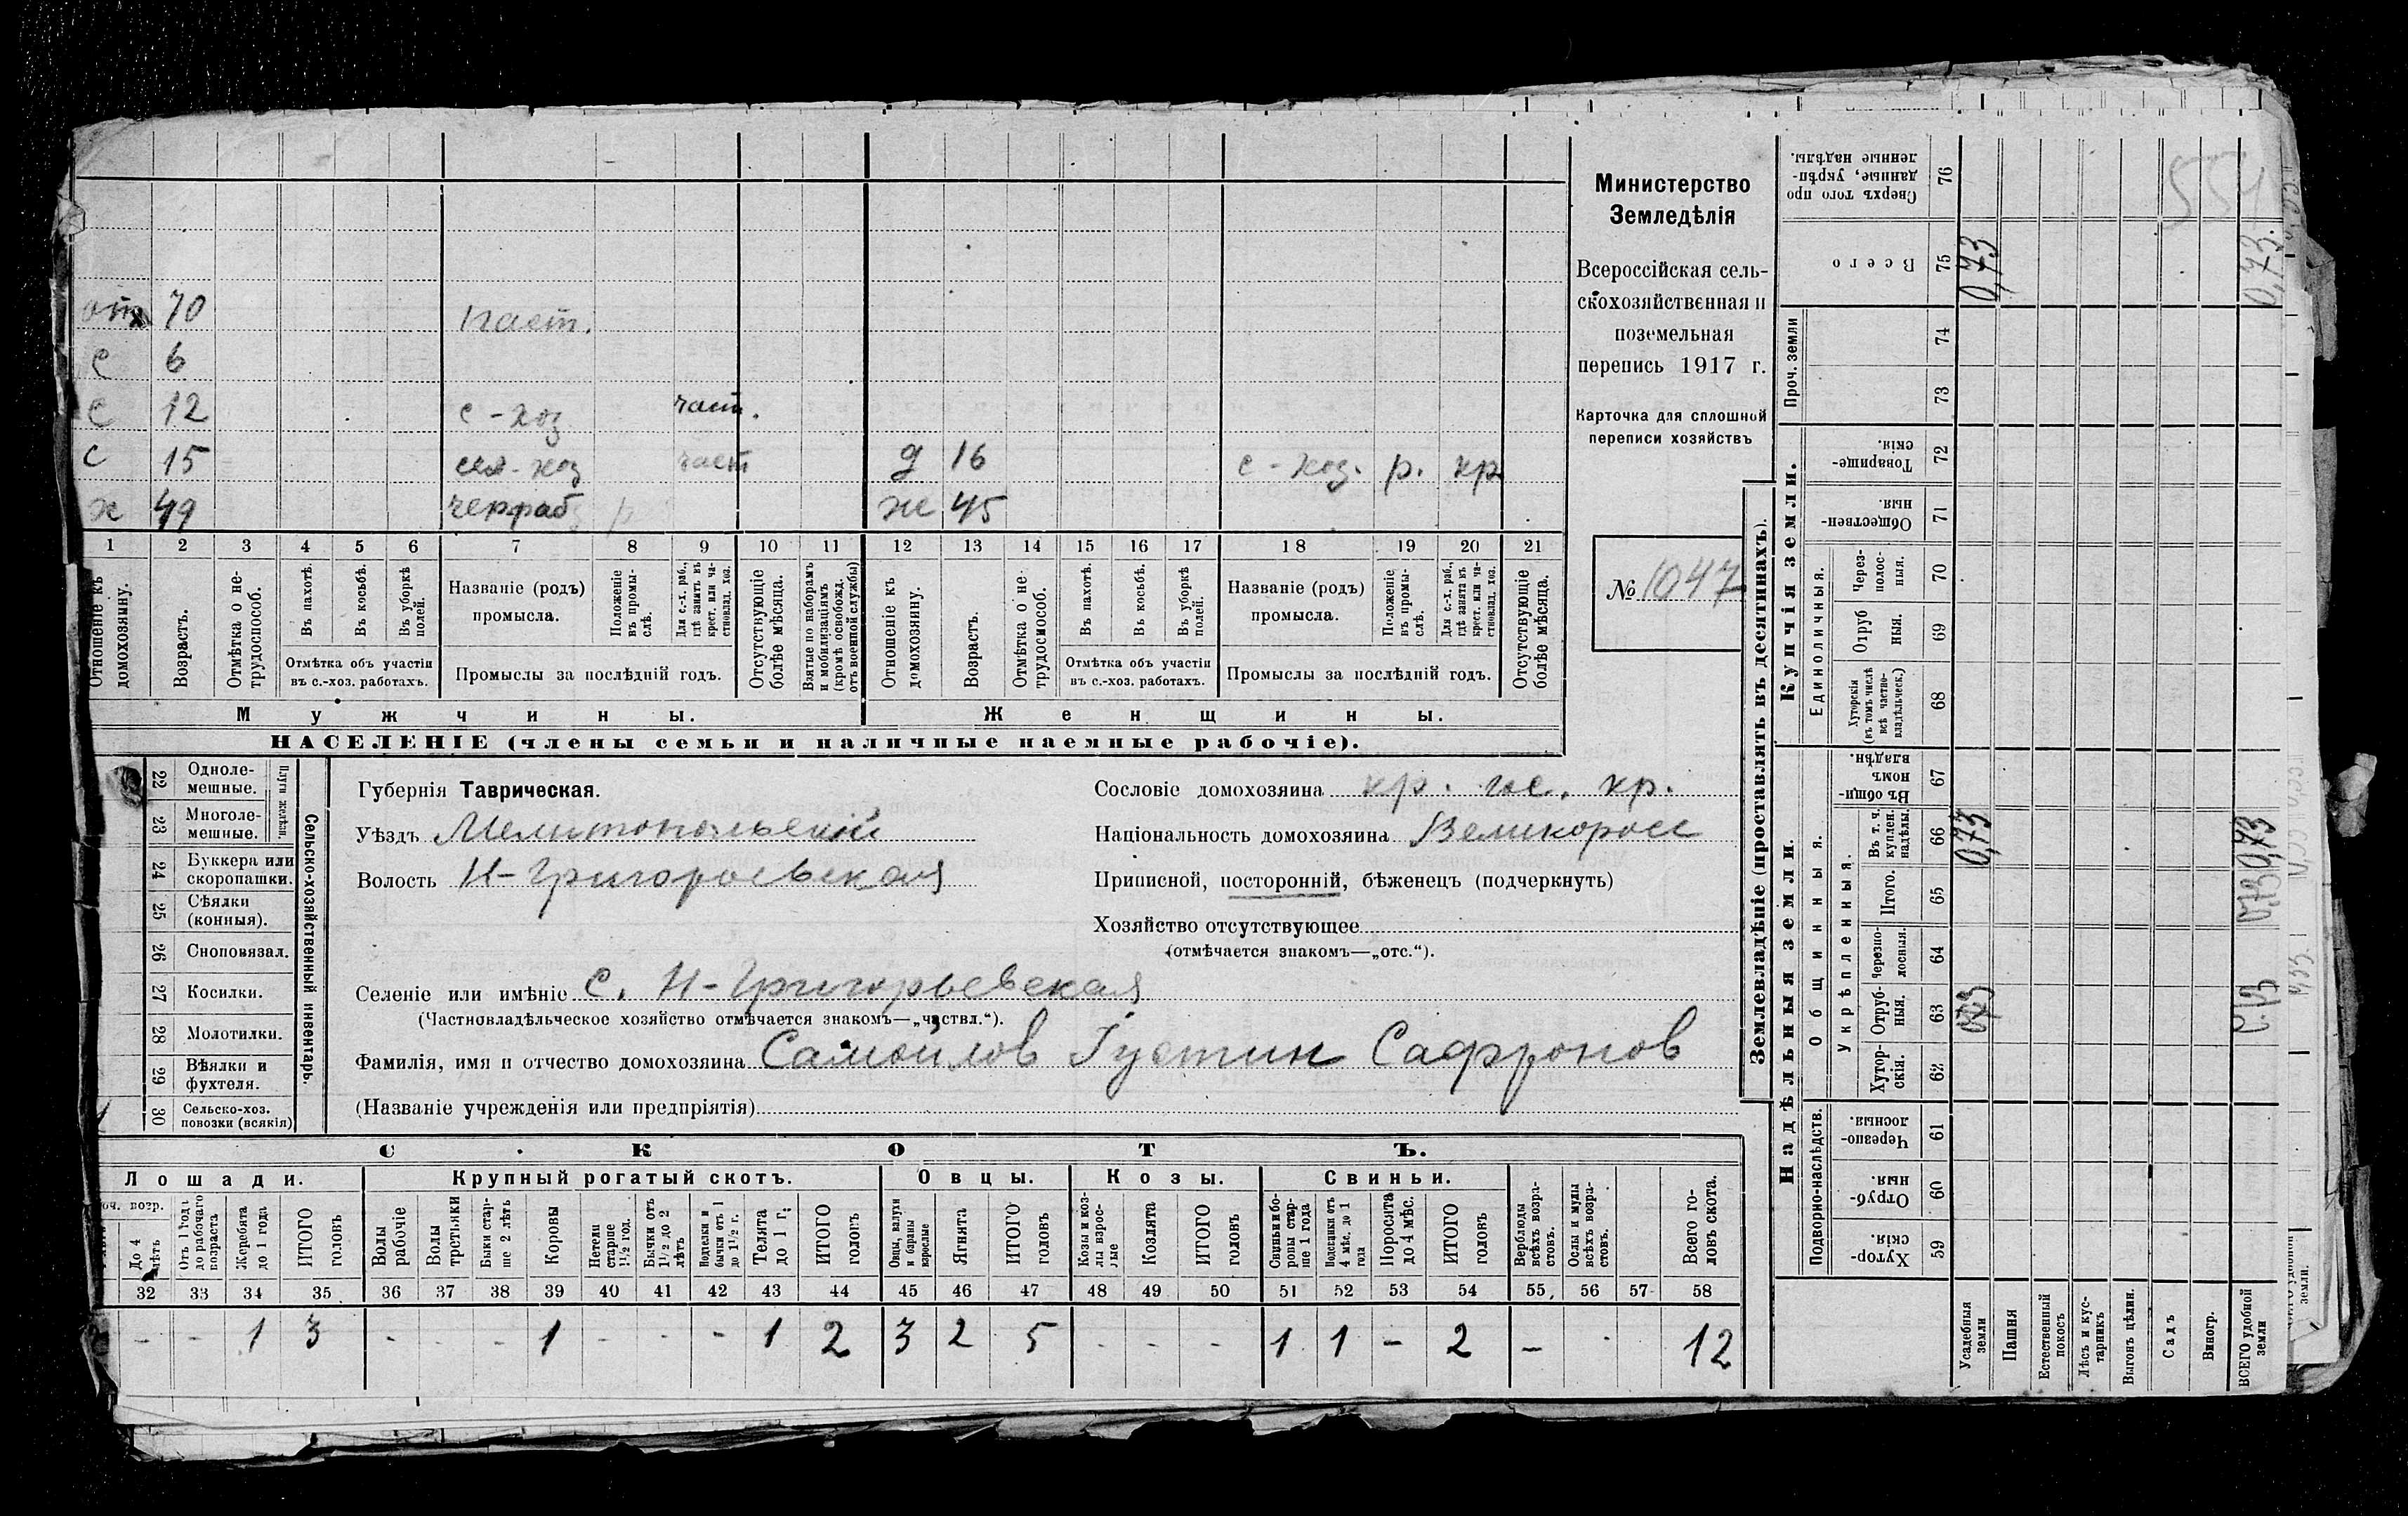 отц 70 част.
с 6
с 12 с-хоз част.
с 15 сел-хоз част д 16 с-хоз. р. кр
х 49 ж 45
1 2 3 4 5 6 7 8 9 10 11 12 13 14 15 16 17 18 19 20 21
Отношеніе къ домохозяину.
Возрастъ.
Отмѣтка о не-
трудоспособ.
Въ пахотѣ.
Въ косьбѣ.
Въ уборкѣ
полей.
Отмѣтка объ участіи
въ с.-хоз. работахъ.
Названіе (родъ)
промысла.
Положеніе
въ промы-
слѣ.
Для с.-х. раб.,
гдѣ занятъ въ
крест. или ча-
стновлад. хоз.
Промыслы за послѣдній годъ.
Отсутствующіе
болѣе мѣсяца.
Взятые по наборамъ
и мобилизаціямъ
(кромѣ освобожд.
отъ военной службы)
Отношеніе къ
домохозяину.
Возрастъ.
Отмѣтка о не
трудоспособ.
Въ пахотѣ.
Въ косьбѣ.
Въ уборкѣ
полей.
Отмѣтка объ участіи
въ с.-хоз. работахъ.
Названіе (родъ)
промысла.
Положеніе
въ промы-
слѣ.
Для с.-х. раб.,
гдѣ занята въ
крест. или ча-
стновлад. хоз.
Промыслы за послѣдній годъ.
Отсутствующіе
болѣе мѣсяца.
Мужчины.
Женщины.
НАСЕЛЕНІЕ (члены семьи и наличные наемные рабочіе).
Министерство
Земледѣлія
Всероссійская сель-
скохозяйственная и
поземельная
перепись 1917 г.
Карточка для сплошной
переписи хозяйствъ
№ 1047
22 Одноле-
мешные.
23 Многоле-
мешные.
Плуги желѣзн.
24 Буккера или
скоропашки.
25 Сѣялки
(конныя).
26 Сноповязал.
27 Косилки.
28 Молотилки.
29 Вѣялки и
фухтеля.
30 Сельско-хоз.
повозки (всякія)
Сельско-хозяйственный инвентарь.
Губернія Таврическая.
Уѣздъ Мелитопольскій
Волость Н-Григорьевская
Селеніе или имѣніе с. Н-Григорьевская
(Частновладѣльческое хозяйство отмѣчается знакомъ—„частвл.“).
Фамилія, имя и отчество домохозяина Самойлов Густин Сафронов
(Названіе учрежденія или предпріятія)
Сословіе домохозяина кр. гос. кр.
Національность домохозяина Великоросс
Приписной, посторонній, бѣженецъ (подчеркнуть)
Хозяйство отсутствующее
(отмѣчается знакомъ—„отс.“).
СКОТЪ.
Лошади.
До 4
лѣтъ
Отъ 1 года
до рабочаго
возраста
Жеребята
до 1 года
ИТОГО
головъ
Крупный рогатый скотъ.
Волы
рабочіе
Волы
третьяки
Быки стар-
ше 2 лѣтъ
Коровы
Нетели
старше
1½ год.
Бычки отъ
1½ до 2
лѣтъ
Подтелки и
бычки отъ 1
до 1½ г.
Телята
до 1 г.
ИТОГО
головъ
Овцы.
Овцы, валухи
и бараны
взрослые
Ягнята
ИТОГО
головъ
Козы.
Козы и коз-
лы взрос-
лые
Козлята
ИТОГО
головъ
Свиньи.
Свиньи и бо-
ровы стар-
ше 1 года
Подсвинки отъ
4 мѣс. до 1
года
Поросята
до 4 мѣс.
ИТОГО
головъ
Верблюды
всѣхъ возра-
стовъ.
Ослы и мулы
всѣхъ возра-
стовъ.
Всего го-
ловъ скота.
32 33 34 35 36 37 38 39 40 41 42 43 44 45 46 47 48 49 50 51 52 53 54 55 56 57 58
- - 1 3 - - - 1 - - - 1 2 3 2 5 - - - 1 1 - 2 - 12
Землевладѣніе (проставлять въ десятинахъ).
Надѣльныя земли.
Подворно-наслѣдств.
Хутор-
скія. 59
Отруб-
ныя. 60
Черезпо-
лосныя. 61
Общинныя.
Укрѣпленныя.
Хутор-
скія. 62
Отруб-
ныя. 63
Черезпо-
лосныя. 64
Итого. 65
Въ т. ч.
куплен.
надѣлы. 66
Въ общи-
номъ
владѣн. 67
Купчія земли.
Единоличныя.
Хуторскія
(въ томъ числѣ
всѣ частно-
владѣльческ.) 68
Отруб
ныя. 69
Через-
полос-
ныя. 70
Обществен-
ныя. 71
Товарище-
скія. 72
Проч. земли
73
74
Всего 75
Сверхъ того про
данные, укрѣп-
ленные надѣлы. 76
Усадебныя
земли 0,73 0,73 0,73
Пашня
Естественный
покосъ
Лѣсъ и кус-
тарникъ
Выгонъ цѣлин.
Садъ
Виногр.
ВСЕГО удобной
земли 0,73 0,73 0,73 0,73.